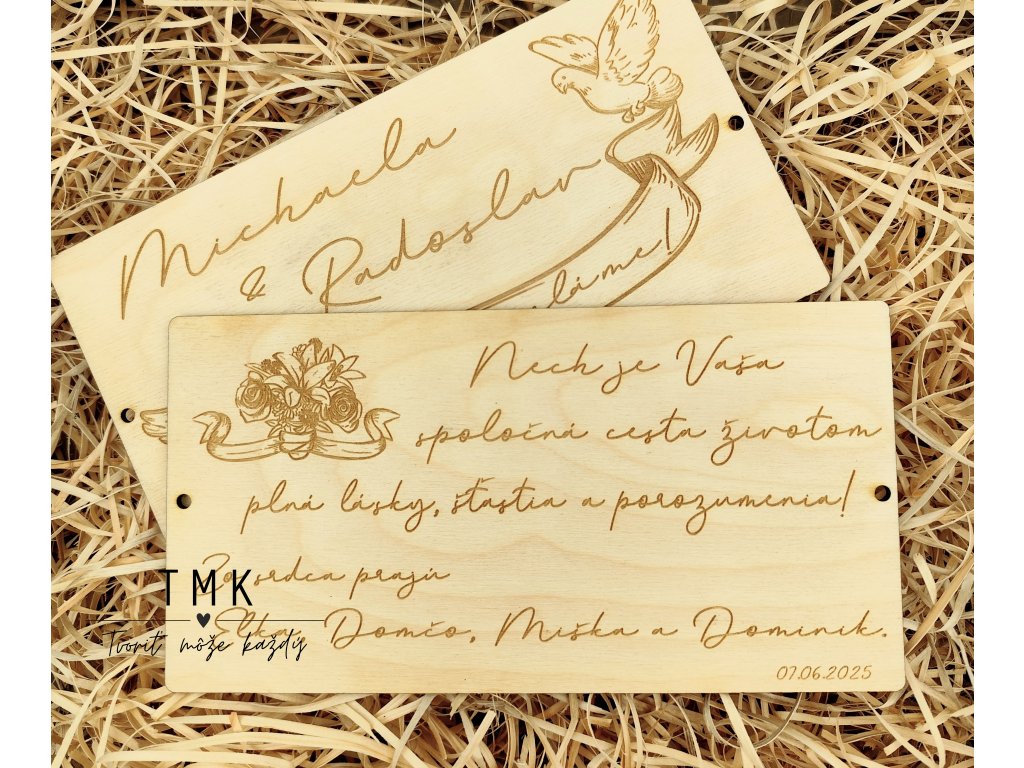 Michaela
& Radoslav
Nech je Vaša
spoločná cesta životom
plná lásky, šťastia a porozumenia!
srdca prajú
Elka, Domčo, Miška a Dominik.
07.06.2025
TMK
Tvoriť môže každý